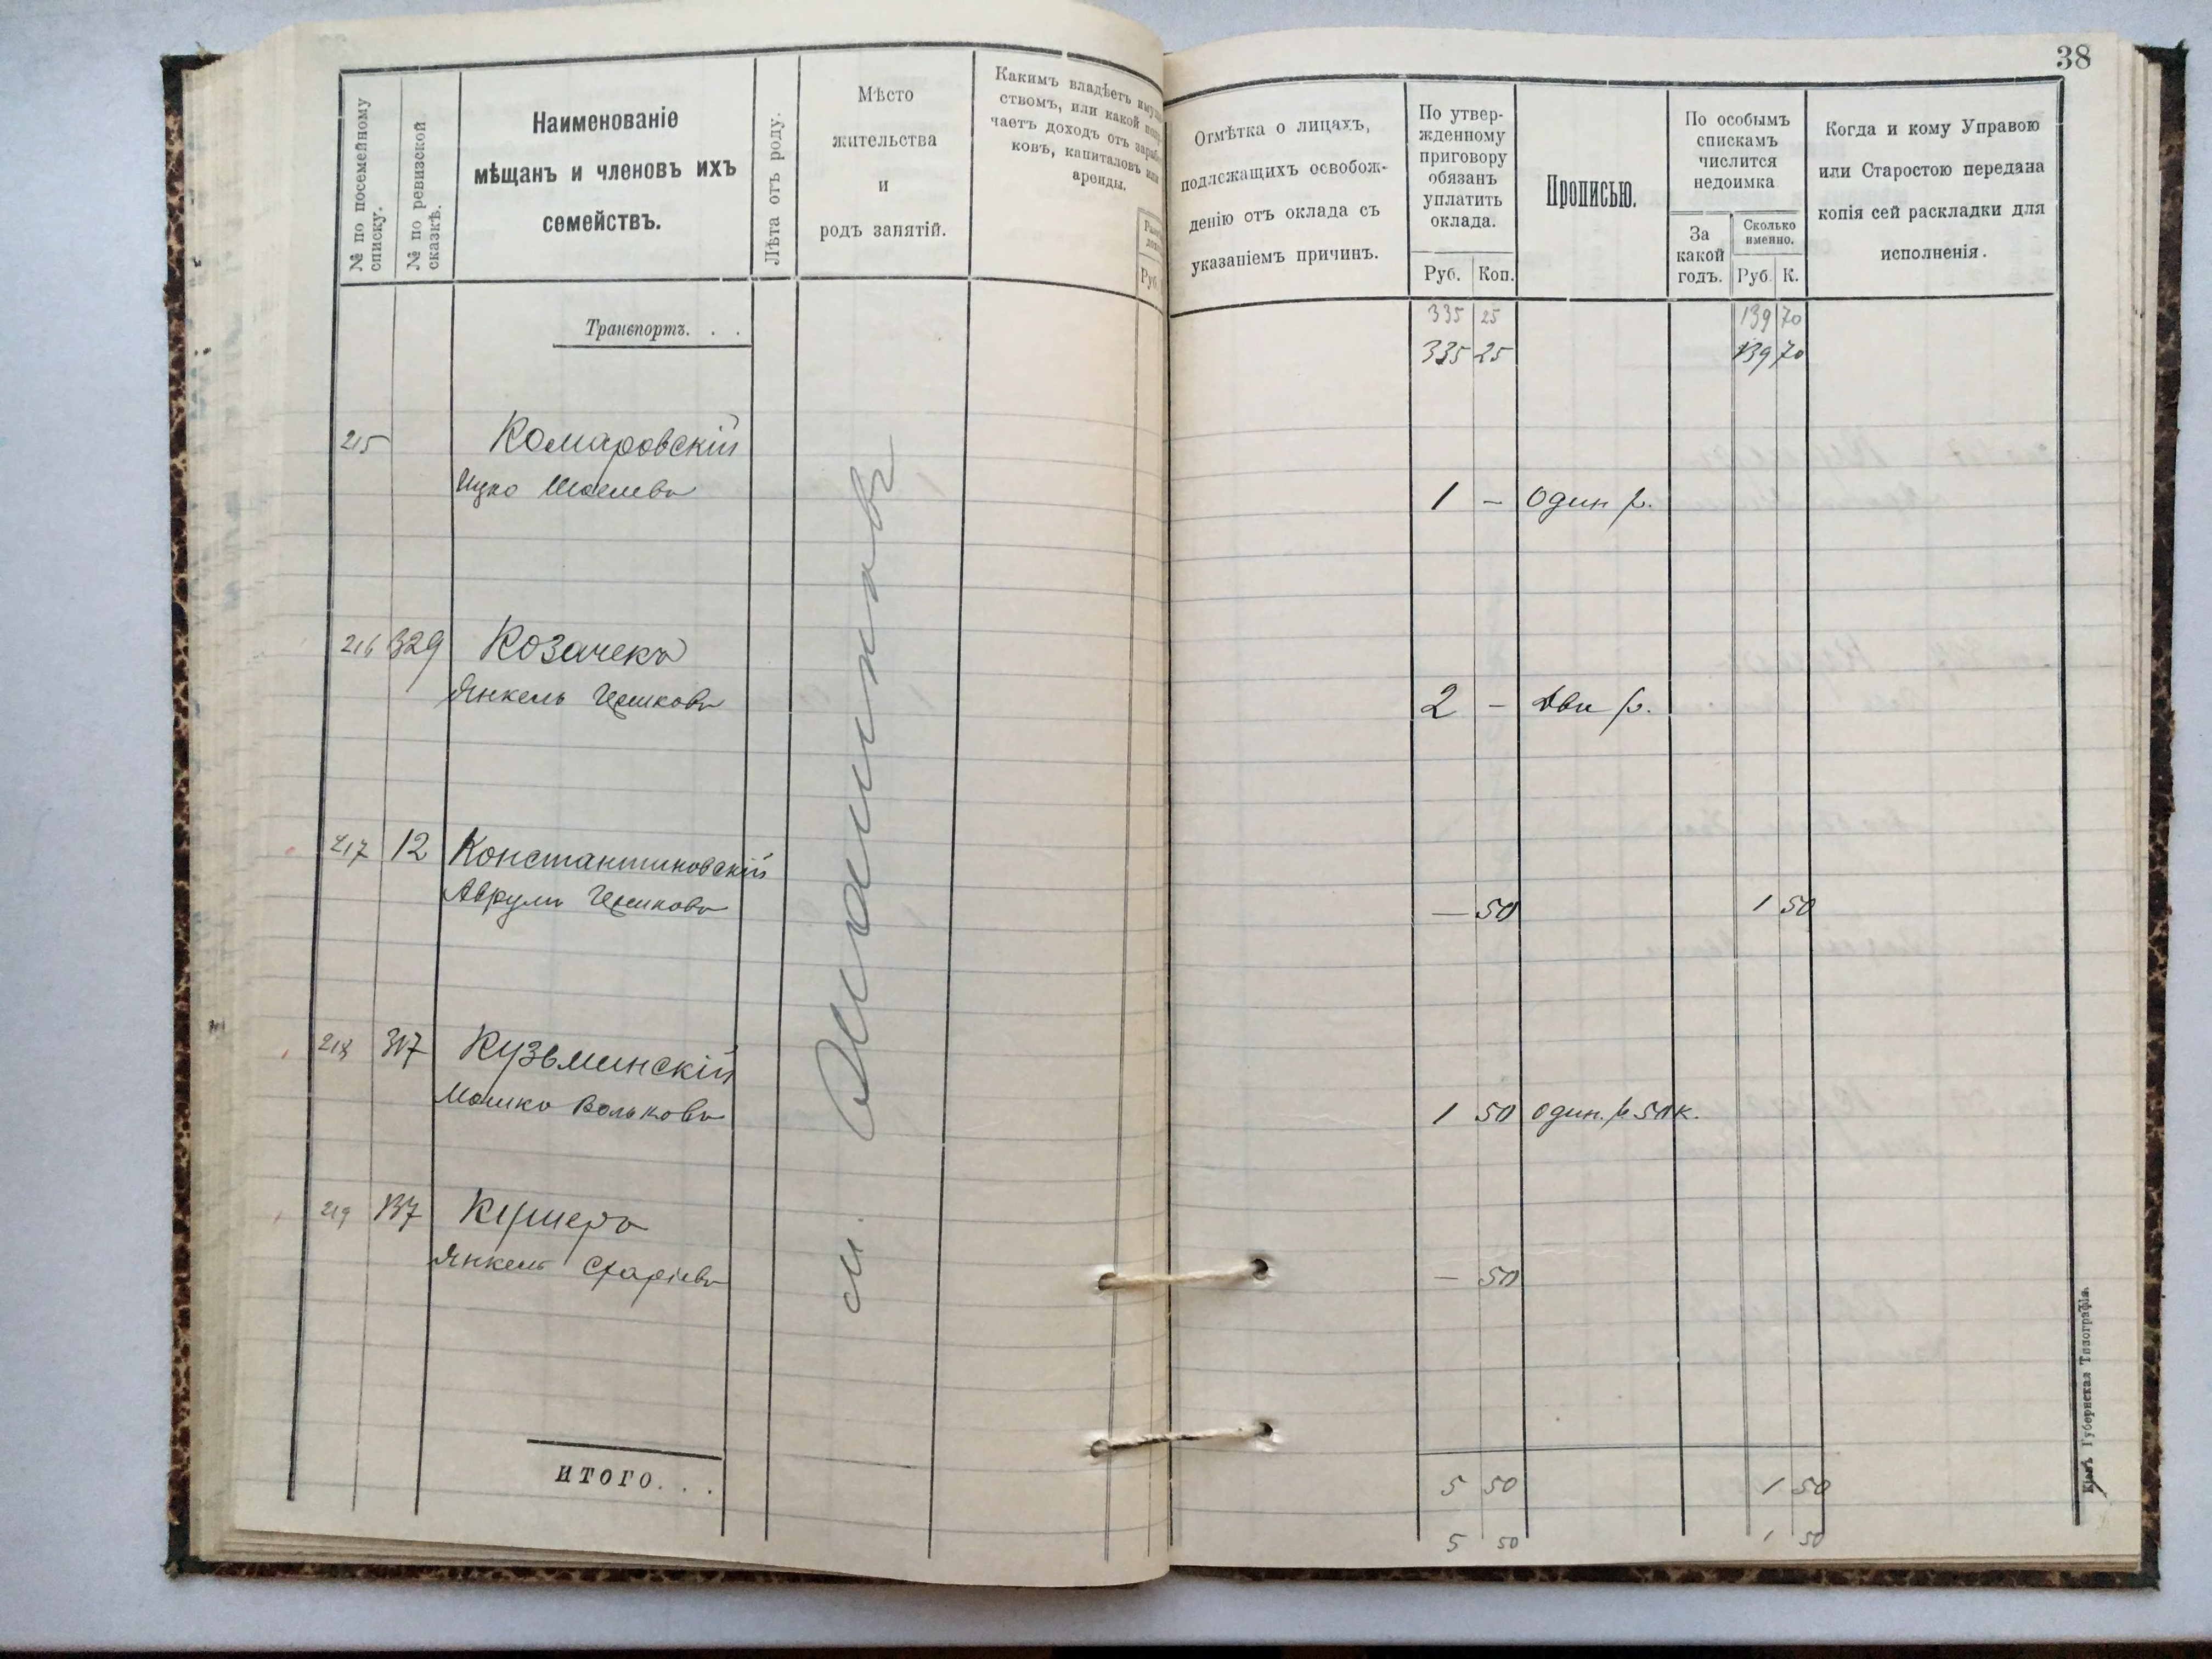 38
№ по посемейному списку.
№ по ревизской сказкѣ.
Наименованіе
мѣщанъ и членовъ ихъ
семействъ.
Лѣта отъ роду.
Мѣсто
жительства
и
родъ занятій.
Какимъ владѣетъ
ствомъ, или какой
чаетъ доходъ отъ
ковъ, капиталовъ или
аренды.
Руб.
Отмѣтка о лицахъ,
подлежащихъ освобож-
денію отъ оклада съ
указаніемъ причинъ.
По утвер-
жденному
приговору
обязанъ
уплатить
оклада.
Руб. Коп.
Прописью.
По особымъ
спискамъ
числится
недоимка
За
какой
годъ.
Сколько
именно.
Руб. К.
Когда и кому Управою
или Старостою передана
копія сей раскладки для
исполненія.
Транспортъ. . .
335 25 139 70
335 25 139 70
215 Комаровскій
Ицко 1 — Один р.
216 329 Козачекъ
Янкель 2 — Два р.
217 12 Константиновскій
Аврумъ — 50 1 50
218 317 Кузьминскій
Мошко Вольковъ 1 50 один. р 50 к.
219 137 Кушеръ
Янкель — 50
м.
ИТОГО. . .
5 50 1 50
5 50 1 50
Кіевъ Губернская Типографія.